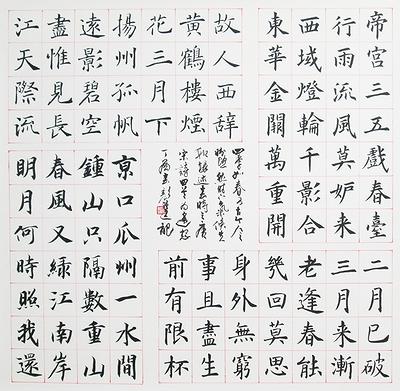 帝宮三五戲春臺
行雨流風莫妒来
西域燈輪千影合
東華金闕萬重開
故人西辭
黃鶴樓煙
花三月下
揚州孤帆
遠影碧空
盡惟見長
江天際流
二月已破
三月来漸
老逢春能
幾回莫思
身外無窮
事且盡生
前有限杯
京口瓜州一水間
鍾山只隔數重山
春風又綠江南岸
明月何時照我還